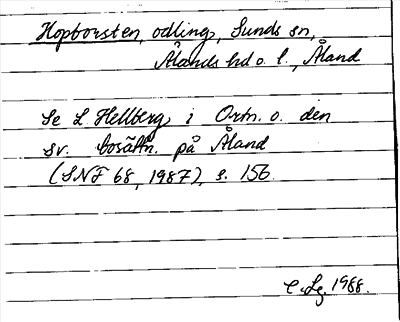 Hopborsten, odling, Sunds sn,
Ålands hd o. l., Åland
Se L Hellberg i Ortn. o. den
sv. bosättn. på Åland
(SNF 68, 1987), s. 156.
C. Lg. 1988.